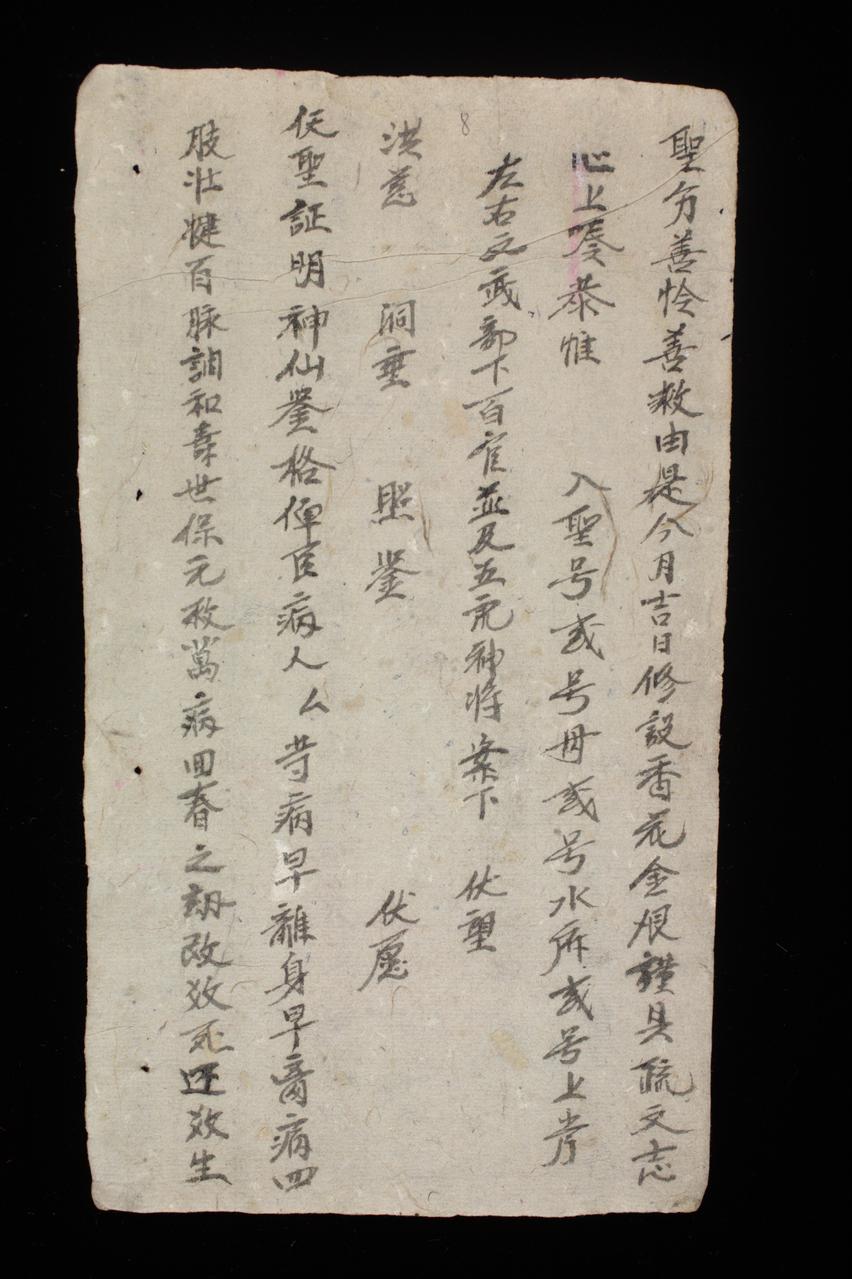 聖方善怜善救由是今月吉日修設香花金艮謹具疏文志
心上奏恭惟 入聖号或号母或号水府或号上岸
左右文武部下百官並及五虎神将案下 伏望
洪慈 洞垂 照鉴 伏愿
伏聖証明神仙鉴格俾臣病人厶苛病早離身早病四
肢壮健百脉調和壽世保元救萬病回春之效死还效生
8